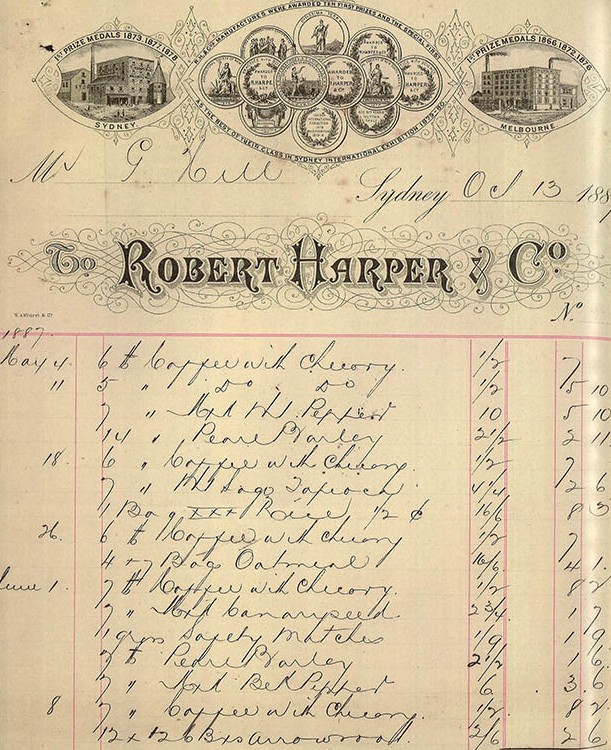 & CO'S MANUFACTURES WERE AWARDED TEN FIRST PRIZES AND THE SPECIAL FIRST
AS THE BEST OF THEIR CLASS IN SYDNEY INTERNATIONAL EXHIBITION 1879-80
1ST PRIZE MEDALS 1873, 1877, 1878
SYDNEY.
AWARDED TO HARPER & Co
1ST PRIZE MEDALS 1866, 1872, 1876
MELBOURNE.
Mr G Hill
Sydney Oct 13 188
To ROBERT HARPER & Co
No
1887
May 4 6 lb Coffee with Chicory. 1/2 7
11 5 " Do Do 1/2 5 10
7 " Wht Pepper 10 5 10
14 " Pearl Barley 2 1/2 2 11
18 6 " Coffee with Chicory. 1/2 7
7 " Sago Tapioca 4 1/4 2 6
1 Bag XXX Rice 1/2 ¢ 16/6 8 3
26 6 lb Coffee with Chicory 1/2 7
4 x 7 Bag Oatmeal 16/6 4 1
June 1 7 lb Coffee with Chicory. 1/2 8 2
7 " Canaryseed 2 3/4 1 7
1 gross Safety Matches 1/9 1 9
7 lb Pearl Barley 2 1/2 1 6
7 " Blk Pepper 6 3 6
8 7 " Coffee with Chicory. 1/2 8 2
12 x 12 Bxs Arrowroot 2/6 2 6